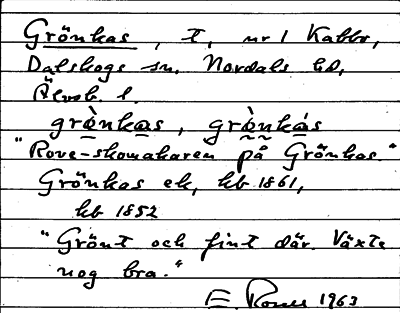 Grönkas, t, nr 1 Kabbo,
Dalskogs sn, Nordals hd,
Älvsb. l.
grònkas, grònkás
"Rove-skomakaren på Grönkas."
Grönkas ek, hb 1861,
hb 1852
"Grönt och fint där. Växte
nog bra."
E. 1963